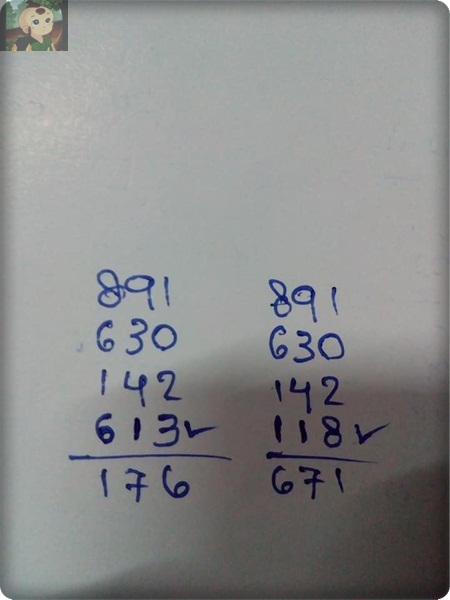 891
630
142
613✓
176
891
630
142
118✓
671